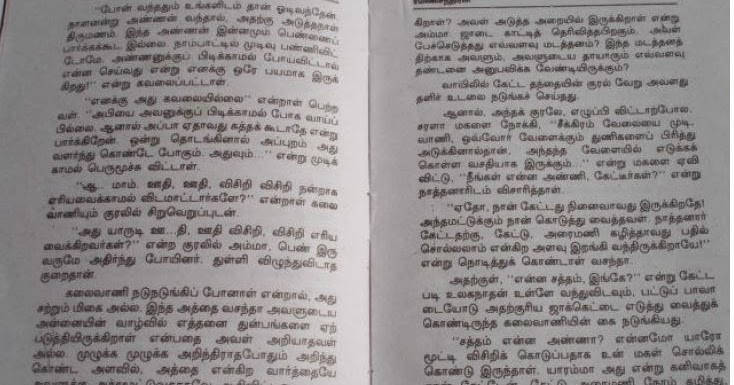 "போன் வந்ததும் உங்களிடம் தான் ஓடிவந்தேன்.
நாளன்று அண்ணன் வந்தால், அதற்கு அடுத்தநாள்
திருமணம். இந்த அண்ணன் இன்னமும் பெண்ணைப்
பார்க்கக்கூட இல்லை. நாம்பாட்டில் முடிவு பண்ணிவிட்
டோமே. அண்ணனுக்குப் பிடிக்காமல் போய்விட்டால்
என்ன செய்வது என்று எனக்கு ஒரே பயமாக இருக்
கிறது!" என்று கவலைப்பட்டாள்.
"எனக்கு அது கவலையில்லை" என்றாள் பெற்ற
வள். "அபியை அவனுக்குப் பிடிக்காமல் போக வாய்ப்
பில்லை. ஆனால் அப்பா ஏதாவது கத்தக் கூடாதே என்று
பார்க்கிறேன். ஒன்று தொடங்கினால் அப்புறம் அது
வளர்ந்து கொண்டே போகும். அதுவும்..." என்று முடிக்
காமல் பெருமூச்சு விட்டாள்.
"ஆ.. மாம். ஊதி, ஊதி, விசிறி விசிறி நன்றாக
எரியவைக்காமல் விடமாட்டார்களே?" என்றாள் கலை
வாணியும் குரலில் சிறுவெறுப்புடன்.
"அது யாருடி ஊ...தி, ஊதி விசிறி, விசிறி எரிய
வைக்கிறவர்கள்?" என்ற குரலில் அம்மா, பெண் இரு
வருமே அதிர்ந்து போயினர். துள்ளி விழுந்துவிடாத
குறைதான்.
கலைவாணி நடுநடுங்கிப் போனாள் என்றால், அது
சற்றும் மிகை அல்ல. இந்த அத்தை வசந்தா அவளுடைய
அன்னையின் வாழ்வில் எத்தனை துன்பங்களை ஏற்
படுத்தியிருக்கிறாள் என்பதை அவள் அறியாதவள்
அல்ல. முழுக்க முழுக்க அறிந்திராதபோதும் அறிந்து
கொண்ட அளவில், அத்தை என்கிற வார்த்தையே
கிறாள்? அவள் அடுத்த அறையில் இருக்கிறாள் என்று
அம்மா ஜாடை காட்டித் தெரிவித்தபிறகும், அவள்
பேச்செடுத்தது எவ்வளவு மடத்தனம்? இந்த மடத்தனத்
திற்காக அவளும், அவளுடைய தாயாகும் எவ்வளவு
தண்டனை அனுபவிக்க வேண்டியிருக்கும்?
வாயிலில் கேட்ட தந்தையின் குரல் வேறு அவளது
தளிர் உடலை நடுங்கச் செய்தது.
ஆனால், அந்தக் குரலே, எழுப்பி விட்டாற்போல,
சரளா மகளை நோக்கி, "சீக்கிரம் வேலையை முடி.
வாணி, ஒவ்வோர் வேளைக்கும் துணிகளைப் பிரித்து
அடுக்கினால்தான், அந்தந்த வேளையில் எடுக்கக்
கொள்ள வசதியாக இருக்கும்..." என்று மகளை ஏவி
விட்டு, "நீங்கள் என்ன அண்ணி, கேட்டீர்கள்?" என்று
நாத்தனாரிடம் விசாரித்தாள்.
"ஏதோ, நான் கேட்டது நினைவாவது இருக்கிறதே!
அந்தமட்டுக்கும் நான் கொடுத்து வைத்தவள். நாத்தனார்
கேட்டதற்கு, கேட்டு, அரைமணி கழித்தாவது பதில்
சொல்லலாம் என்கிற அளவு இறங்கி வந்திருக்கிறாயே!"
என்று நொடித்துக் கொண்டாள் வசந்தா.
அதற்குள், "என்ன சத்தம், இங்கே?" என்று கேட்ட
படி உலகநாதன் உள்ளே வந்துவிடவும், பட்டுப் பாவா
டையோடு அதற்குரிய ஜாக்கெட்டை எடுத்து வைத்துக்
கொண்டிருந்த கலைவாணியின் கை நடுங்கியது.
"சத்தம் என்ன அண்ணா? என்னமோ யாரோ
மூட்டி விசிறிக் கொடுப்பதாக உன் மகள் சொல்லிக்
கொண்டு இருந்தாள். யாரம்மா அது என்று கனிவாகத்